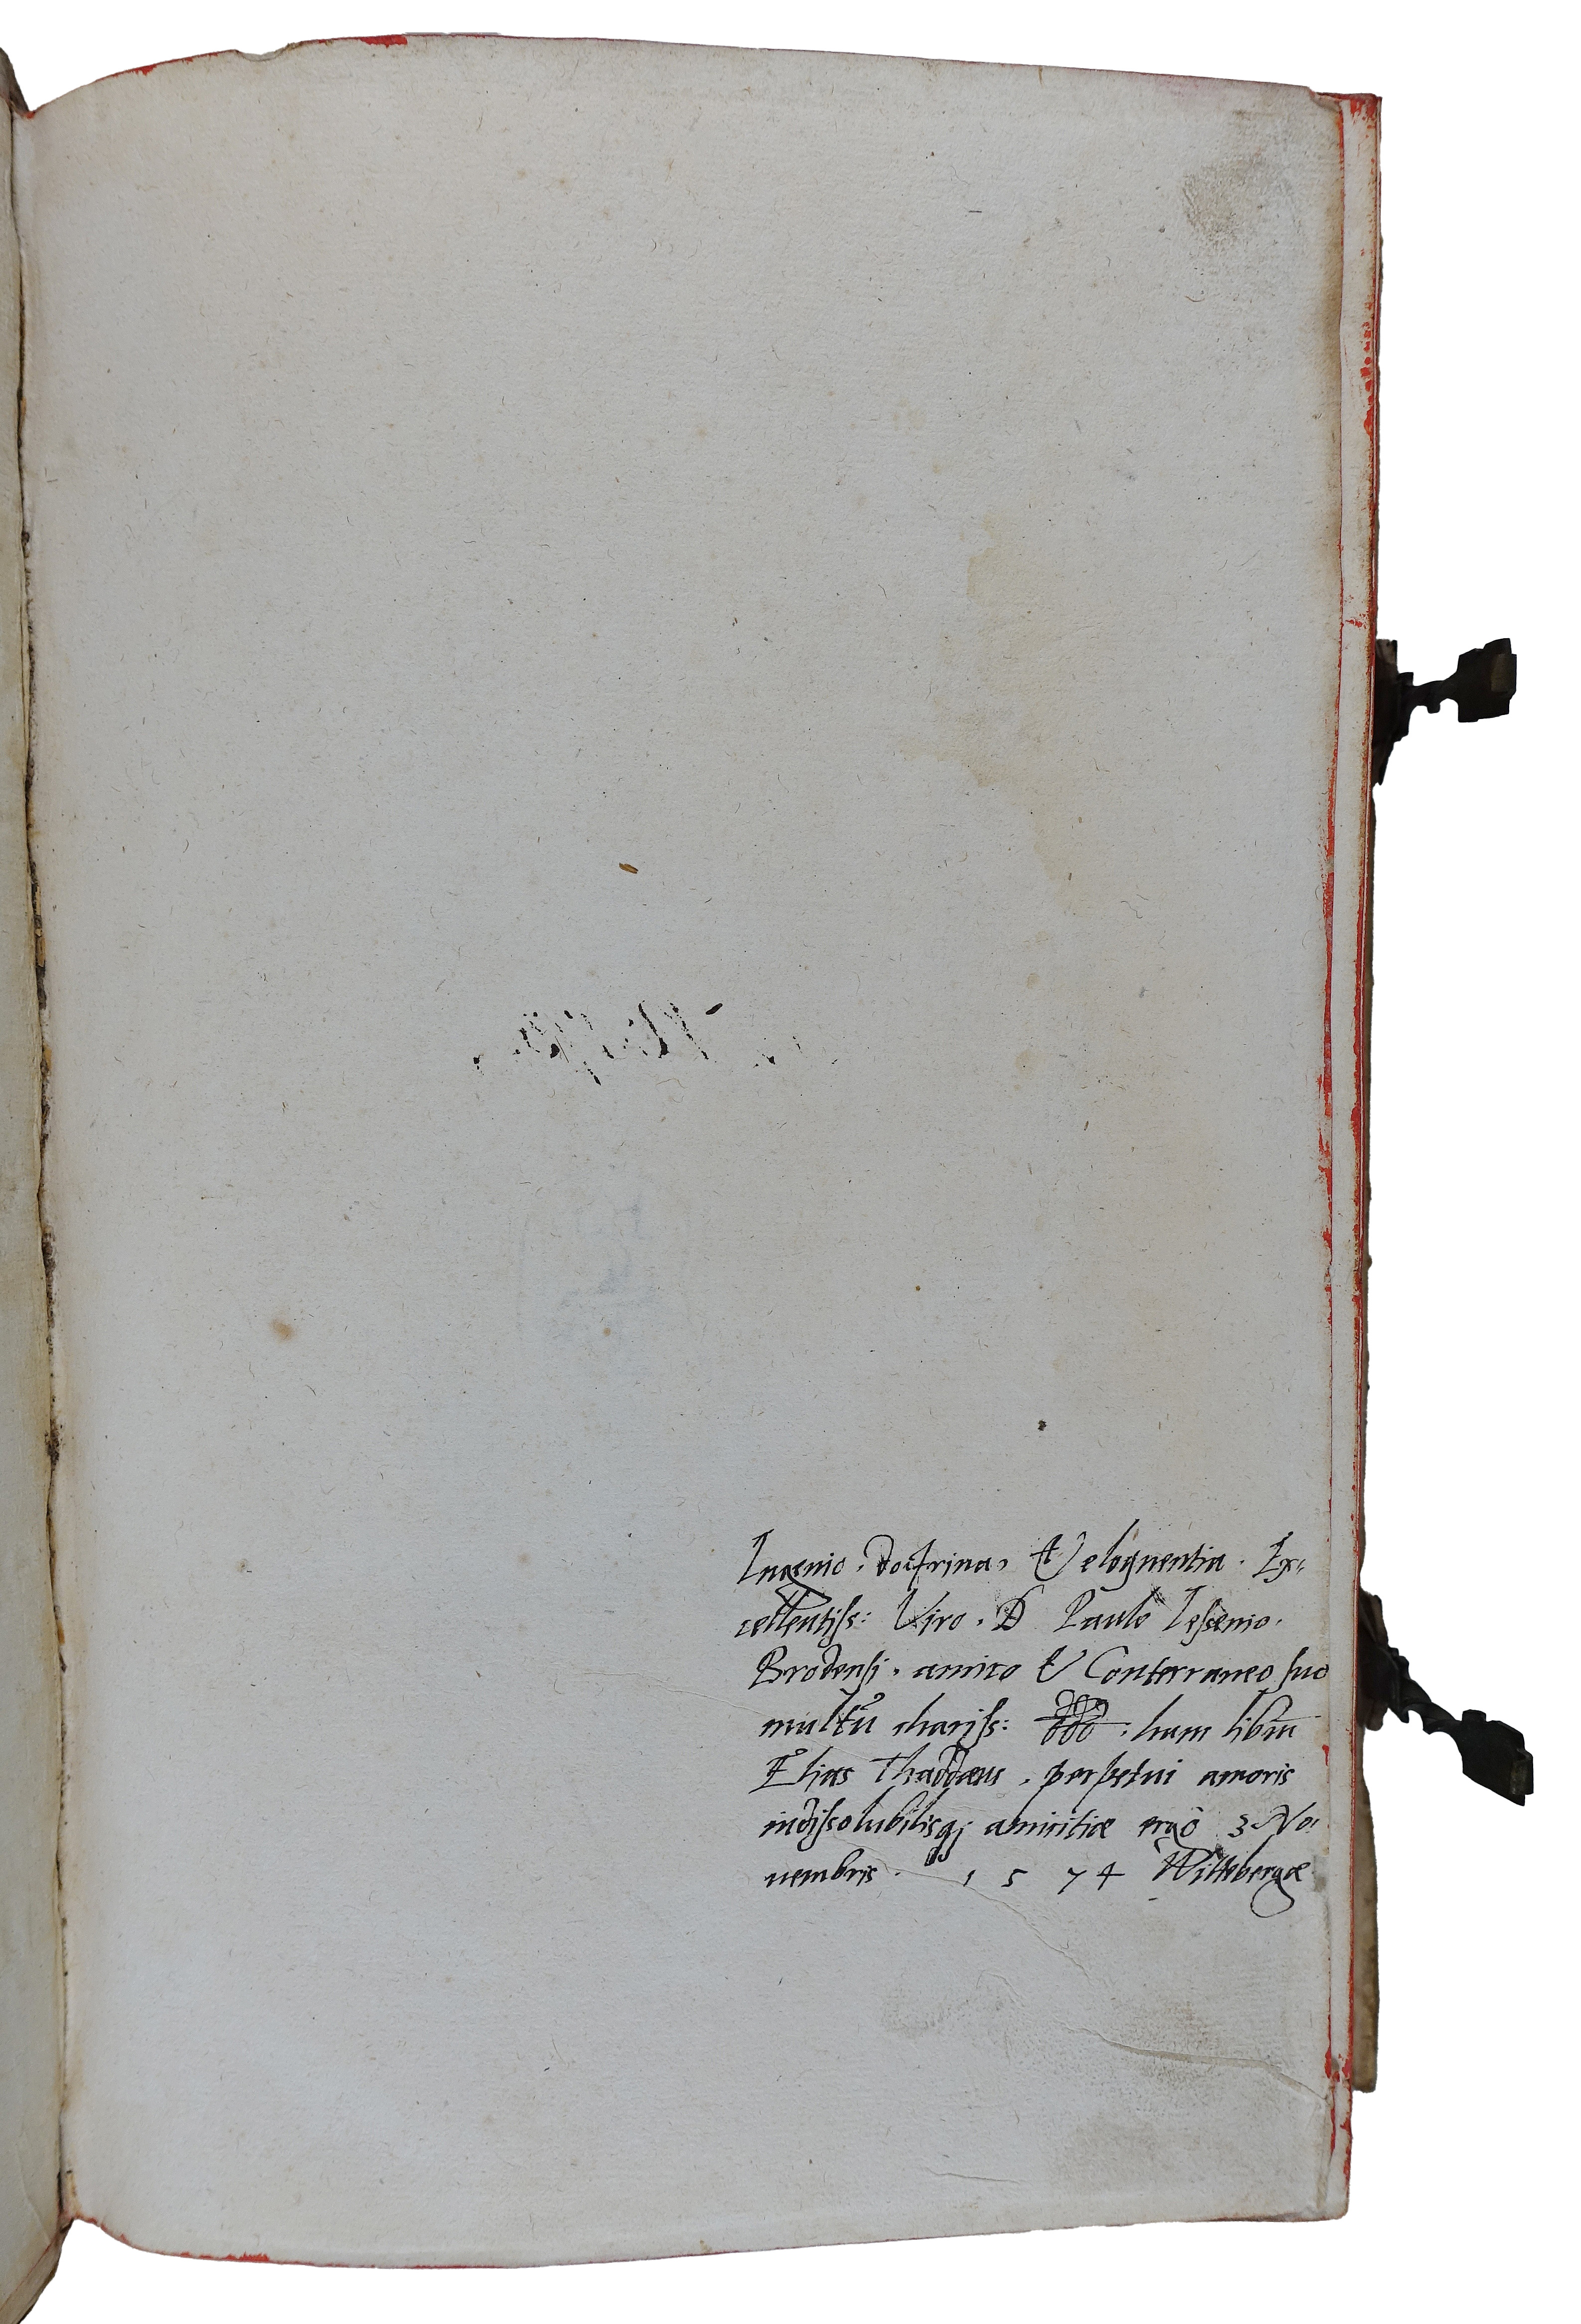 Ingenio, doctrina, & eloquentia. Ex-
cellentiss: Viro. D Paulo Iessenio.
Brodensi. amico & Conterraneo suo
multũ chariss: ddd: hunc librũ
Elias Thaddæus, perpetui amoris
indissolubilisqꝫ amicitiæ ergò 3 No-
uembris. 1574 Wittebergæ